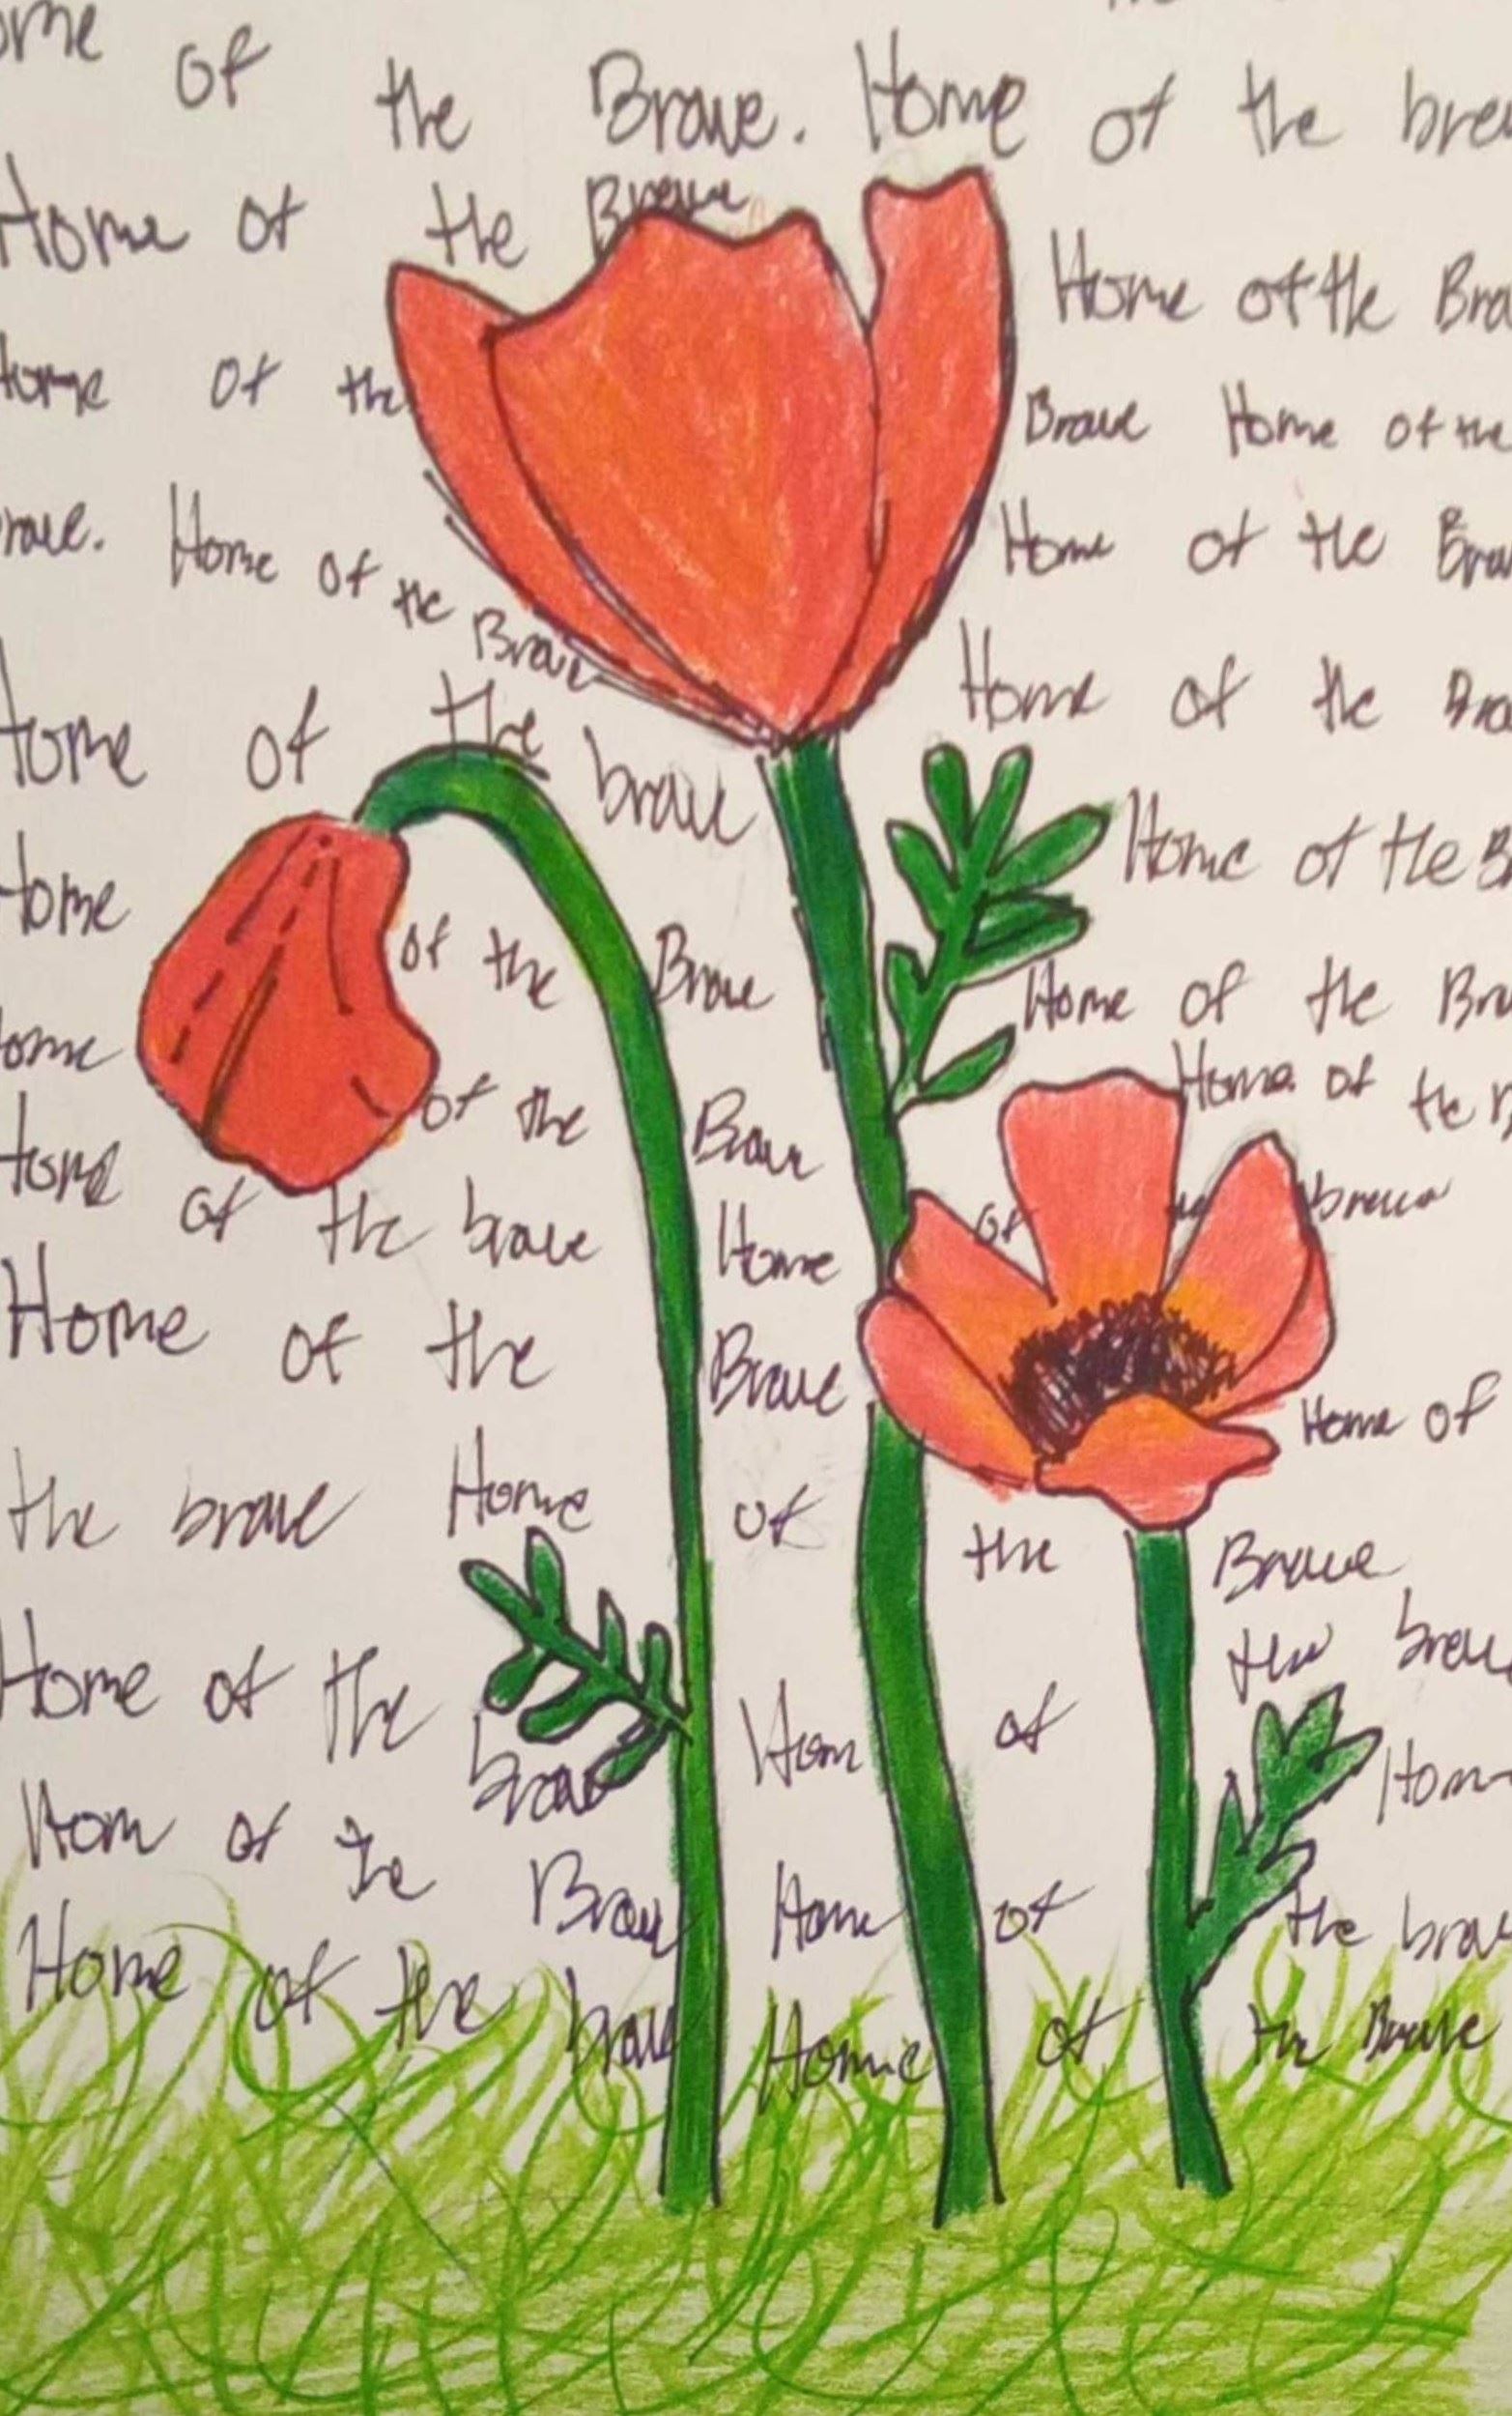 ome of the Brave. Home of the brav
Home of the Brave
Home of the Bra
Home of the Brave Home of the
rave. Home of the Brave Home of the Brav
Home of the brave Home of the Bra
Home of the Brave Home of the B
ome of the Brave Home of the Bra
Home of the brave Home of the B
Home of the brave
Home of the Brave Home of
the brave Home of the Brave
the brav
Home of the brave Hom of Hom
Hom of the Brav Home of the brav
Home of the brave Home of the Brave